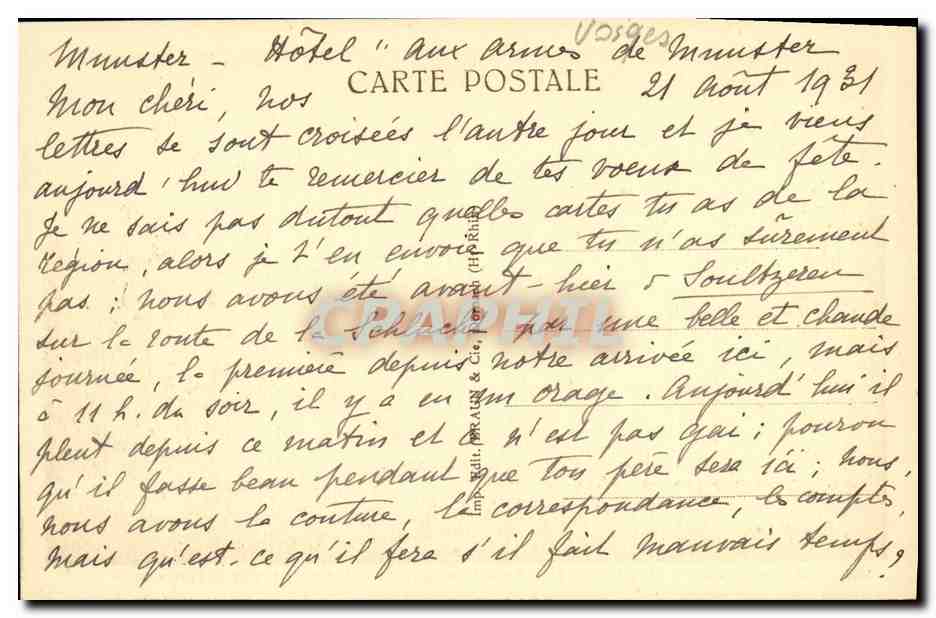 Vosges
Munster - Hôtel "aux armes de Munster
CARTE POSTALE
21 Août 1931
Mon chéri, nos
lettres se sont croisées l'autre jour et je viens
aujourd'hui te remercier de tes voeux de fête.
Je ne sais pas dutout quelles cartes tu as de la
région, alors je t'en envoie que tu n'as sûrement
pas ; nous avons été avant-hier à Soultzeren
sur la route de la Schlucht par une belle et chaude
journée, la première depuis notre arrivée ici, mais
à 11 h. du soir, il y a eu un orage. Aujourd'hui il
pleut depuis ce matin et ce n'est pas gai ; pourvu
qu'il fasse beau pendant que ton père sera ici ; nous,
nous avons la couture, la correspondance, les comptes,
mais qu'est-ce qu'il fera s'il fait mauvais temps ?
Imp. Edit. BRAUN & Cie, (Ht-Rhin)
CPAPHIL